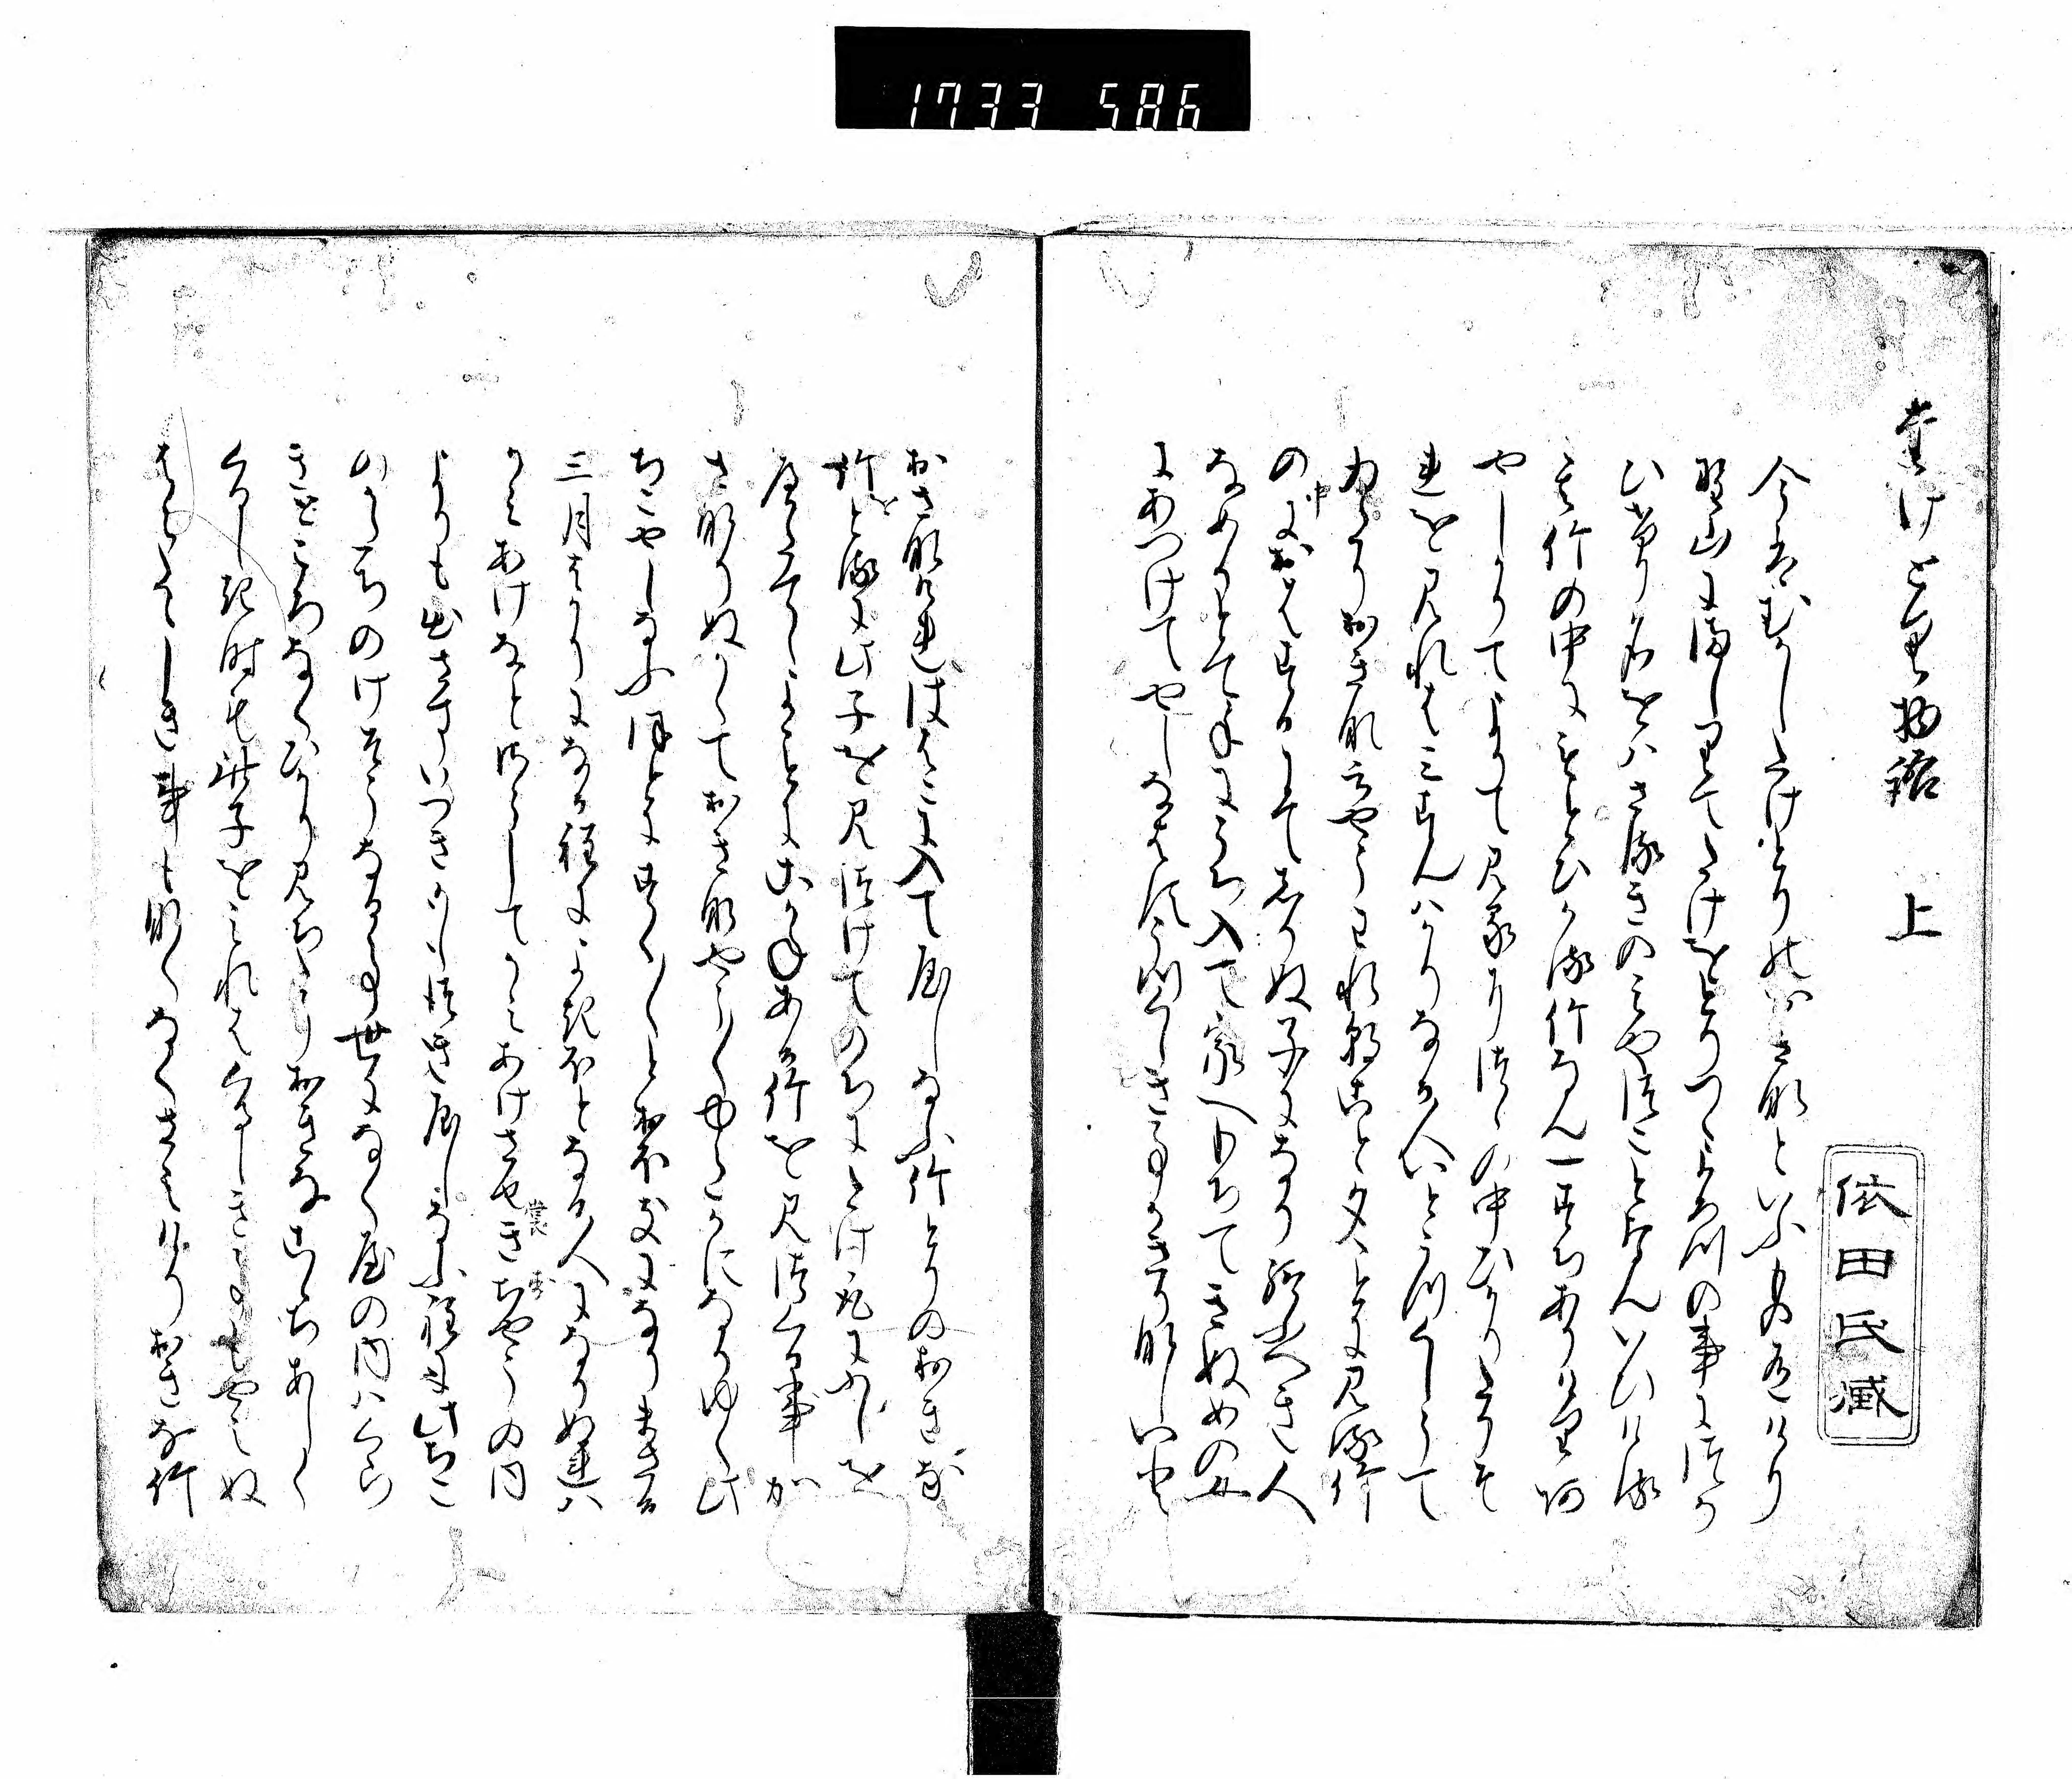 1733 586
たけとり物語 上
依田氏蔵
今はむかしたけとりのおきなといふものありけり
野山にましりてたけをとりつゝよろつの事につか
ひけり名をはさるきのみやつことなんいひける
その竹の中にもとひかる竹なん一すちありけりあ
やしかりてよりて見るにつゝの中ひかりたりそ
れを見れは三すんはかりなる人いとうつくしうて
ゐたりおきな云やうわれ朝ことタことに見る竹
の中におはするにてしりぬ子になり給へき人
なめりとて手にうち入て家へもちてきぬめの女
にあつけてやしなはすうつくしき事かきりなしいと
おさなけれははこに入てやしなふ竹とりのおきな
竹をとるに此子を見つけてのちにたけとるにふしを
へたてゝよことにこかねある竹を見つくる事か
さなりぬかくておきなやう〱ゆたかになりゆく此
ちこやしなふほとにすく〱とおほきになりまさる
三月はかりになる程によきほとなる人になりぬれは
かみあけなとさうしてかみあけさせきちやうの内
裳
よりも出さすいつきかしつきやしなふ程に此ちこ
のかたちのけそうなる事世になく屋の内はくら
きところなくひかりみちたりおきなこゝちあしく
くるしき時も此子をみれはくるしき事もやみぬ
はらたゝしき事も慰なくさみけりおきな竹